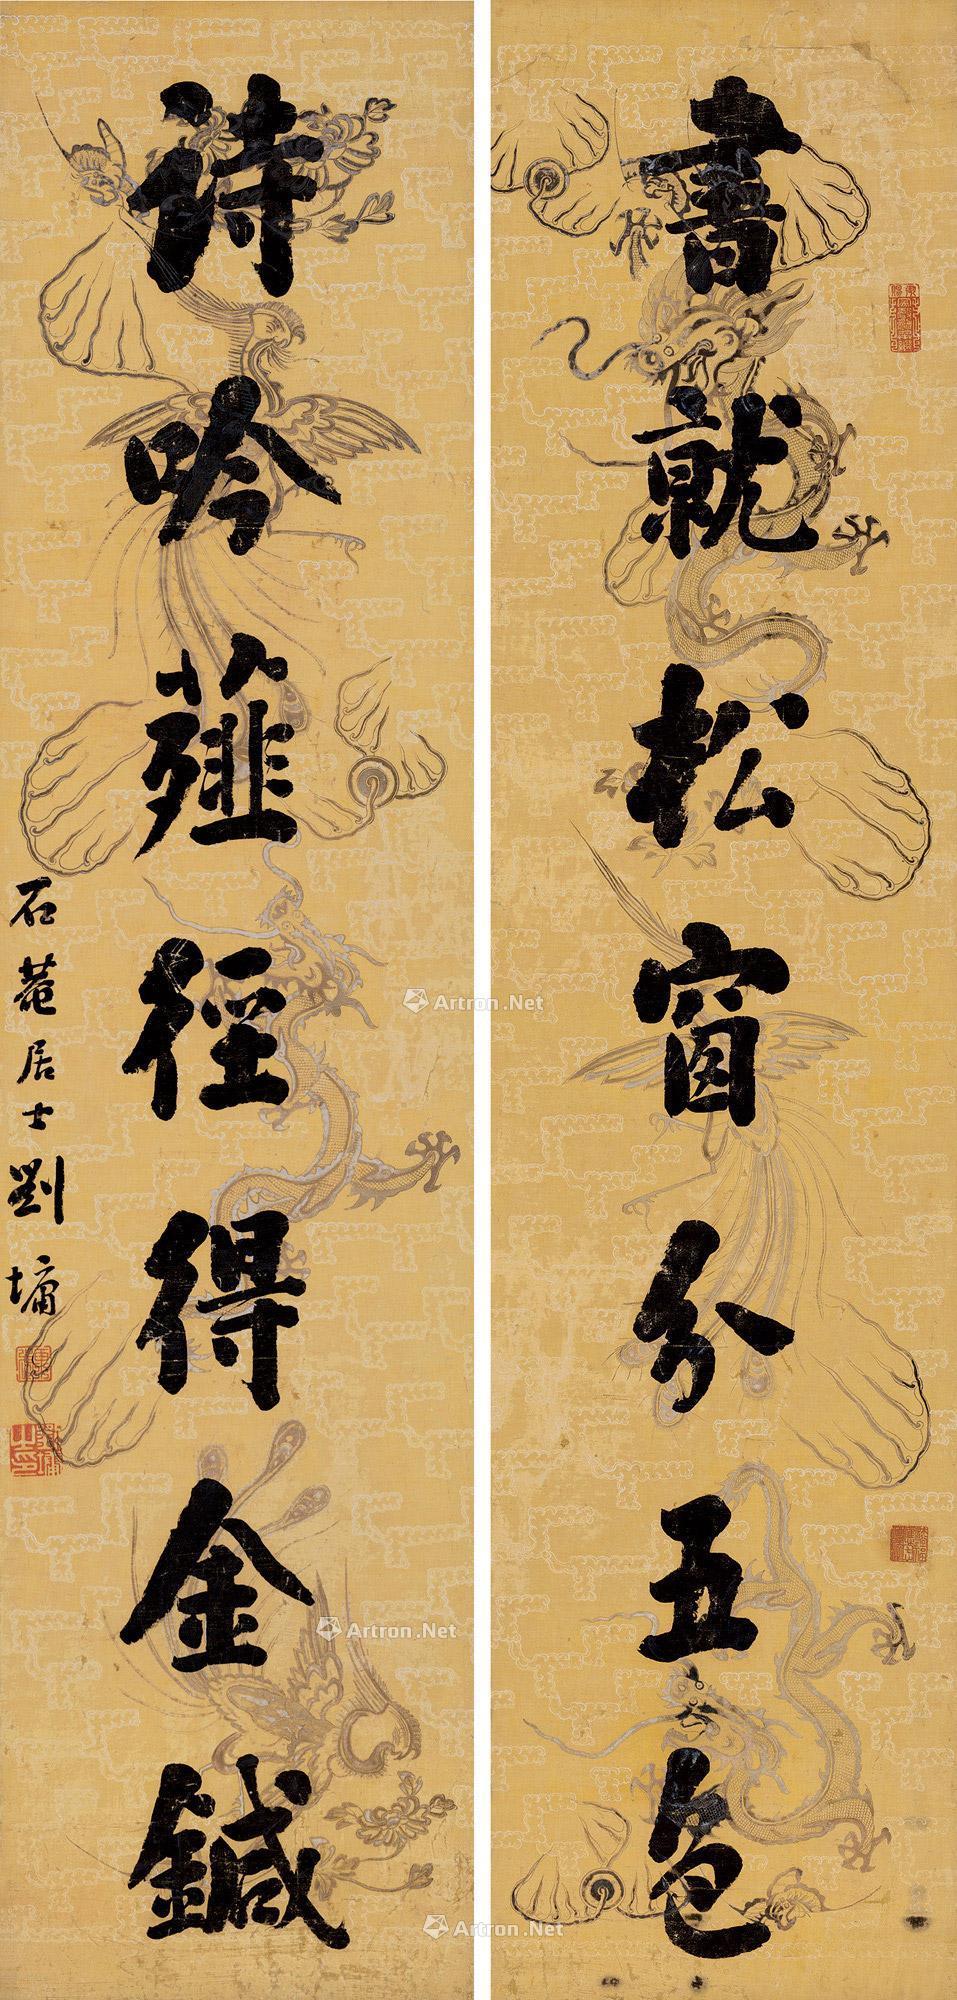 書就松窗分五色
詩吟薤徑得金鍼
石菴居士劉墉
Artron.Net
Artron.Net
Artron.Net
Artron.Net